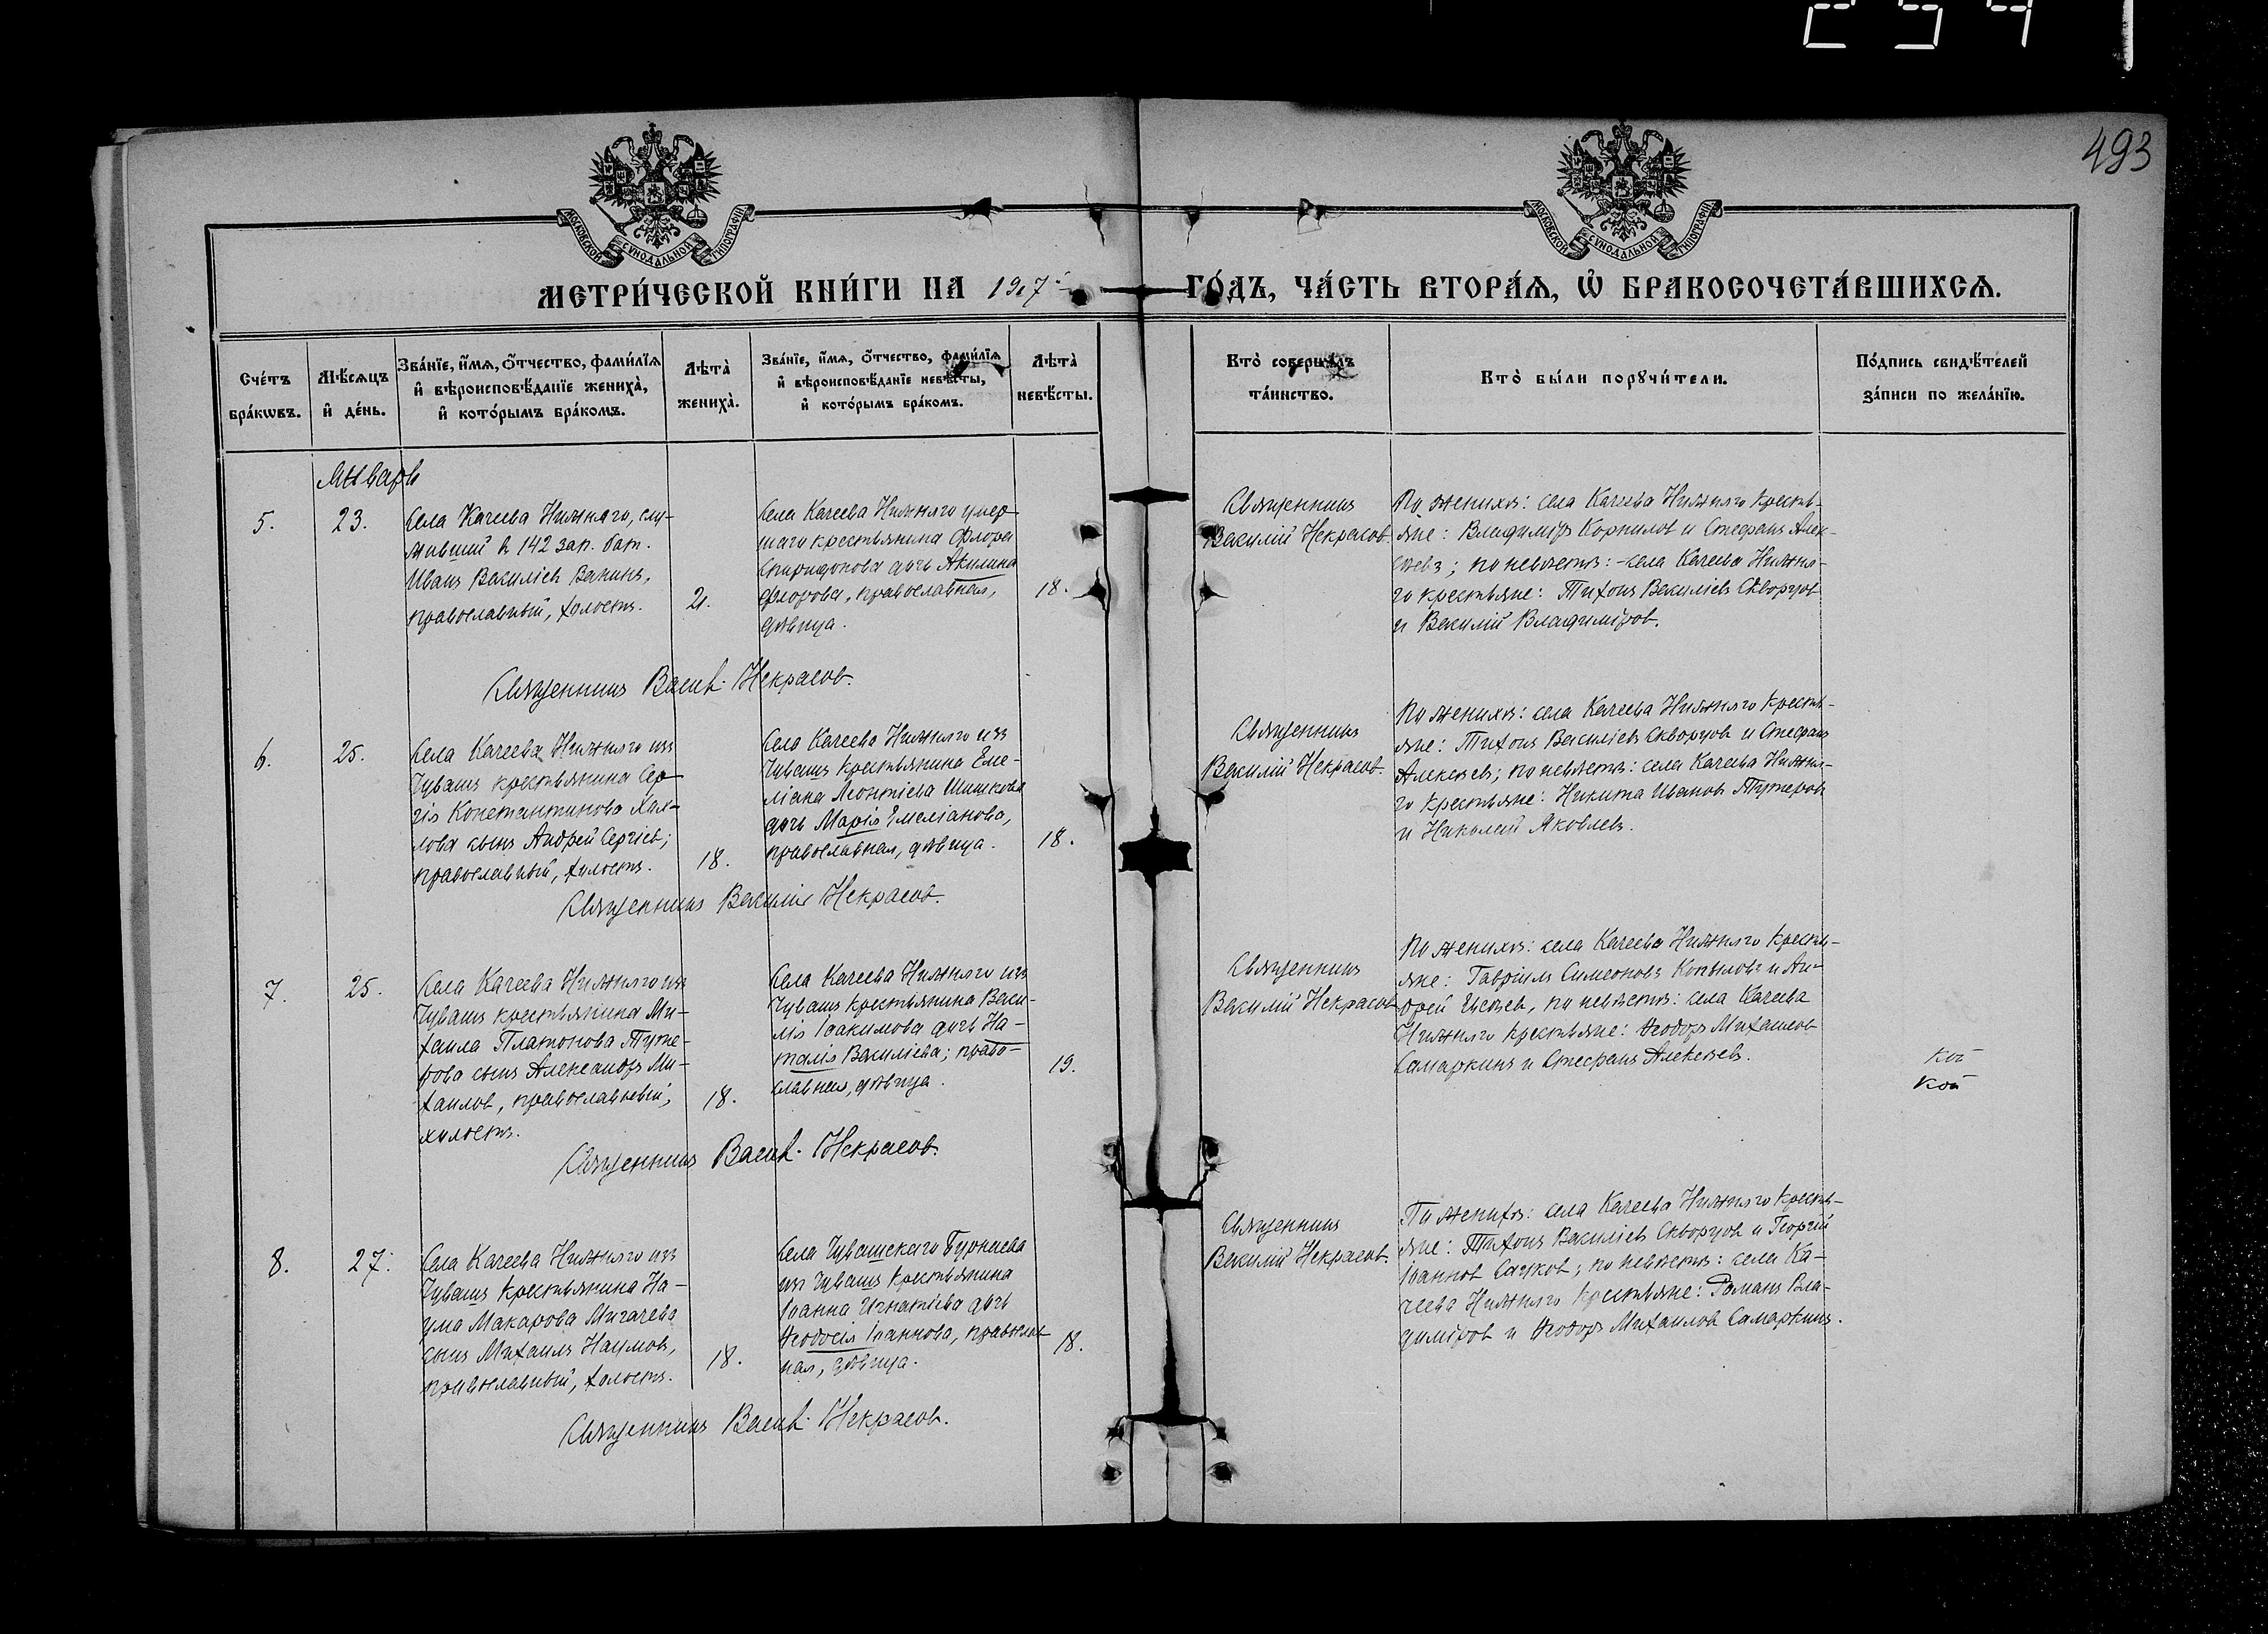 254
493
МОСКОВСКОЙ СѴНОДАЛЬНОЙ ТИПОГРАФІИ
МОСКОВСКОЙ СѴНОДАЛЬНОЙ ТИПОГРАФІИ
МЕТРИ́ЧЕСКОЙ КНИ́ГИ НА 1907. ГО́ДЪ, ЧА́СТЬ ВТОРА́Ѧ, Ѽ БРАКОСОЧЕТА́ВШИХСѦ.
Сче́тъ
бра́кѡвъ.
Мѣ́сѧцъ
и҆ де́нь.
Зва́нїе, и҆́мѧ, ѻ҆́тчество, фами́лїѧ
и҆ вѣроисповѣ́данїе жениха̀,
и҆ кото́рымъ бра́комъ.
Лѣта̀
жениха̀.
Зва́нїе, и҆́мѧ, ѻ҆́тчество, фами́лїѧ
и҆ вѣроисповѣ́данїе невѣ́сты,
и҆ кото́рымъ бра́комъ.
Лѣта̀
невѣ́сты.
Кто̀ соверша́лъ
та́инство.
Кто̀ бы́ли порꙋчи́тели.
По́дпись свидѣ́телей
за́писи по жела́нїю.
Январь
5.
23.
Села Качеева Нижняго, слу-
жившій в 142 зап. бат.
Иванъ Василіев Ванинъ,
православный, холостъ.
21.
Села Качеева Нижняго умер-
шаго крестьянина Флора
Спиридонова дочь Акилина
Флорова, православная,
дѣвица.
18.
Священникъ
Василій Некрасов.
По женихѣ: села Качеева Нижняго кресть-
яне: Владимір Корнилов и Стефанъ Алек-
сѣевъ; по невѣстѣ: села Качеева Нижня-
го крестьяне: Тихонъ Василіевъ Скворцов
и Василій Владиміров.
Священникъ Васил. Некрасов.
6.
25.
Села Качеева Нижняго изъ
Чувашъ крестьянина Сер-
гія Константинова
сынъ Андрей Сергіев;
православный, холостъ.
18.
Села Качеева Нижняго изъ
Чувашъ крестьянина Еме-
ліана Леонтіева Шишкова
дочь Марія Емеліанова,
православная, дѣвица.
18.
Священникъ
Василій Некрасов.
По женихѣ: села Качеева Нижняго кресть-
яне: Тихонъ Василіевъ Скворцов и Стефанъ
Алексѣев; по невѣстѣ: села Качеева Нижня-
го крестьяне: Никита Иванов Тутеров
и Николай Яковлевъ.
Священникъ Василій Некрасов.
7.
25.
Села Качеева Нижняго изъ
Чувашъ крестьянина Ми-
хаила Платонова Туте-
рова сынъ Александръ Ми-
хаилов, православный,
холостъ.
18.
Села Качеева Нижняго изъ
Чувашъ крестьянина Васи-
лія Іоакимова дочь На-
талія Василіева; право-
славная, дѣвица.
19.
Священникъ
Василій Некрасов
По женихѣ: села Качеева Нижняго кресть-
яне: Гавріилъ Симеоновъ Копыловъ и Ан-
дрей по невѣстѣ: села Качеева
Нижняго крестьяне: Ѳеодоръ Михаилов
Самаркинъ и Стефанъ Алексѣевъ.
Священникъ Васил. Некрасов.
8.
27.
Села Качеева Нижняго изъ
Чувашъ крестьянина На-
ума Макарова Мигачева
сынъ Михаилъ Наумов,
православный, холостъ.
18.
Села Чувашскаго Бурнаева
изъ Чувашъ крестьянина
Іоанна Игнатіева дочь
Ѳеодосія Іоаннова, православ
ная, дѣвица.
18.
Священникъ
Василій Некрасов.
По женихѣ: села Качеева Нижняго кресть-
яне: Тихонъ Василіевъ Скворцов и Георгій
Іоаннов по невѣстѣ: села Ка-
чеева Нижняго крестьяне: Романъ Вла-
диміров и Ѳеодоръ Михаилов Самаркинъ.
Священникъ Васил. Некрасов.